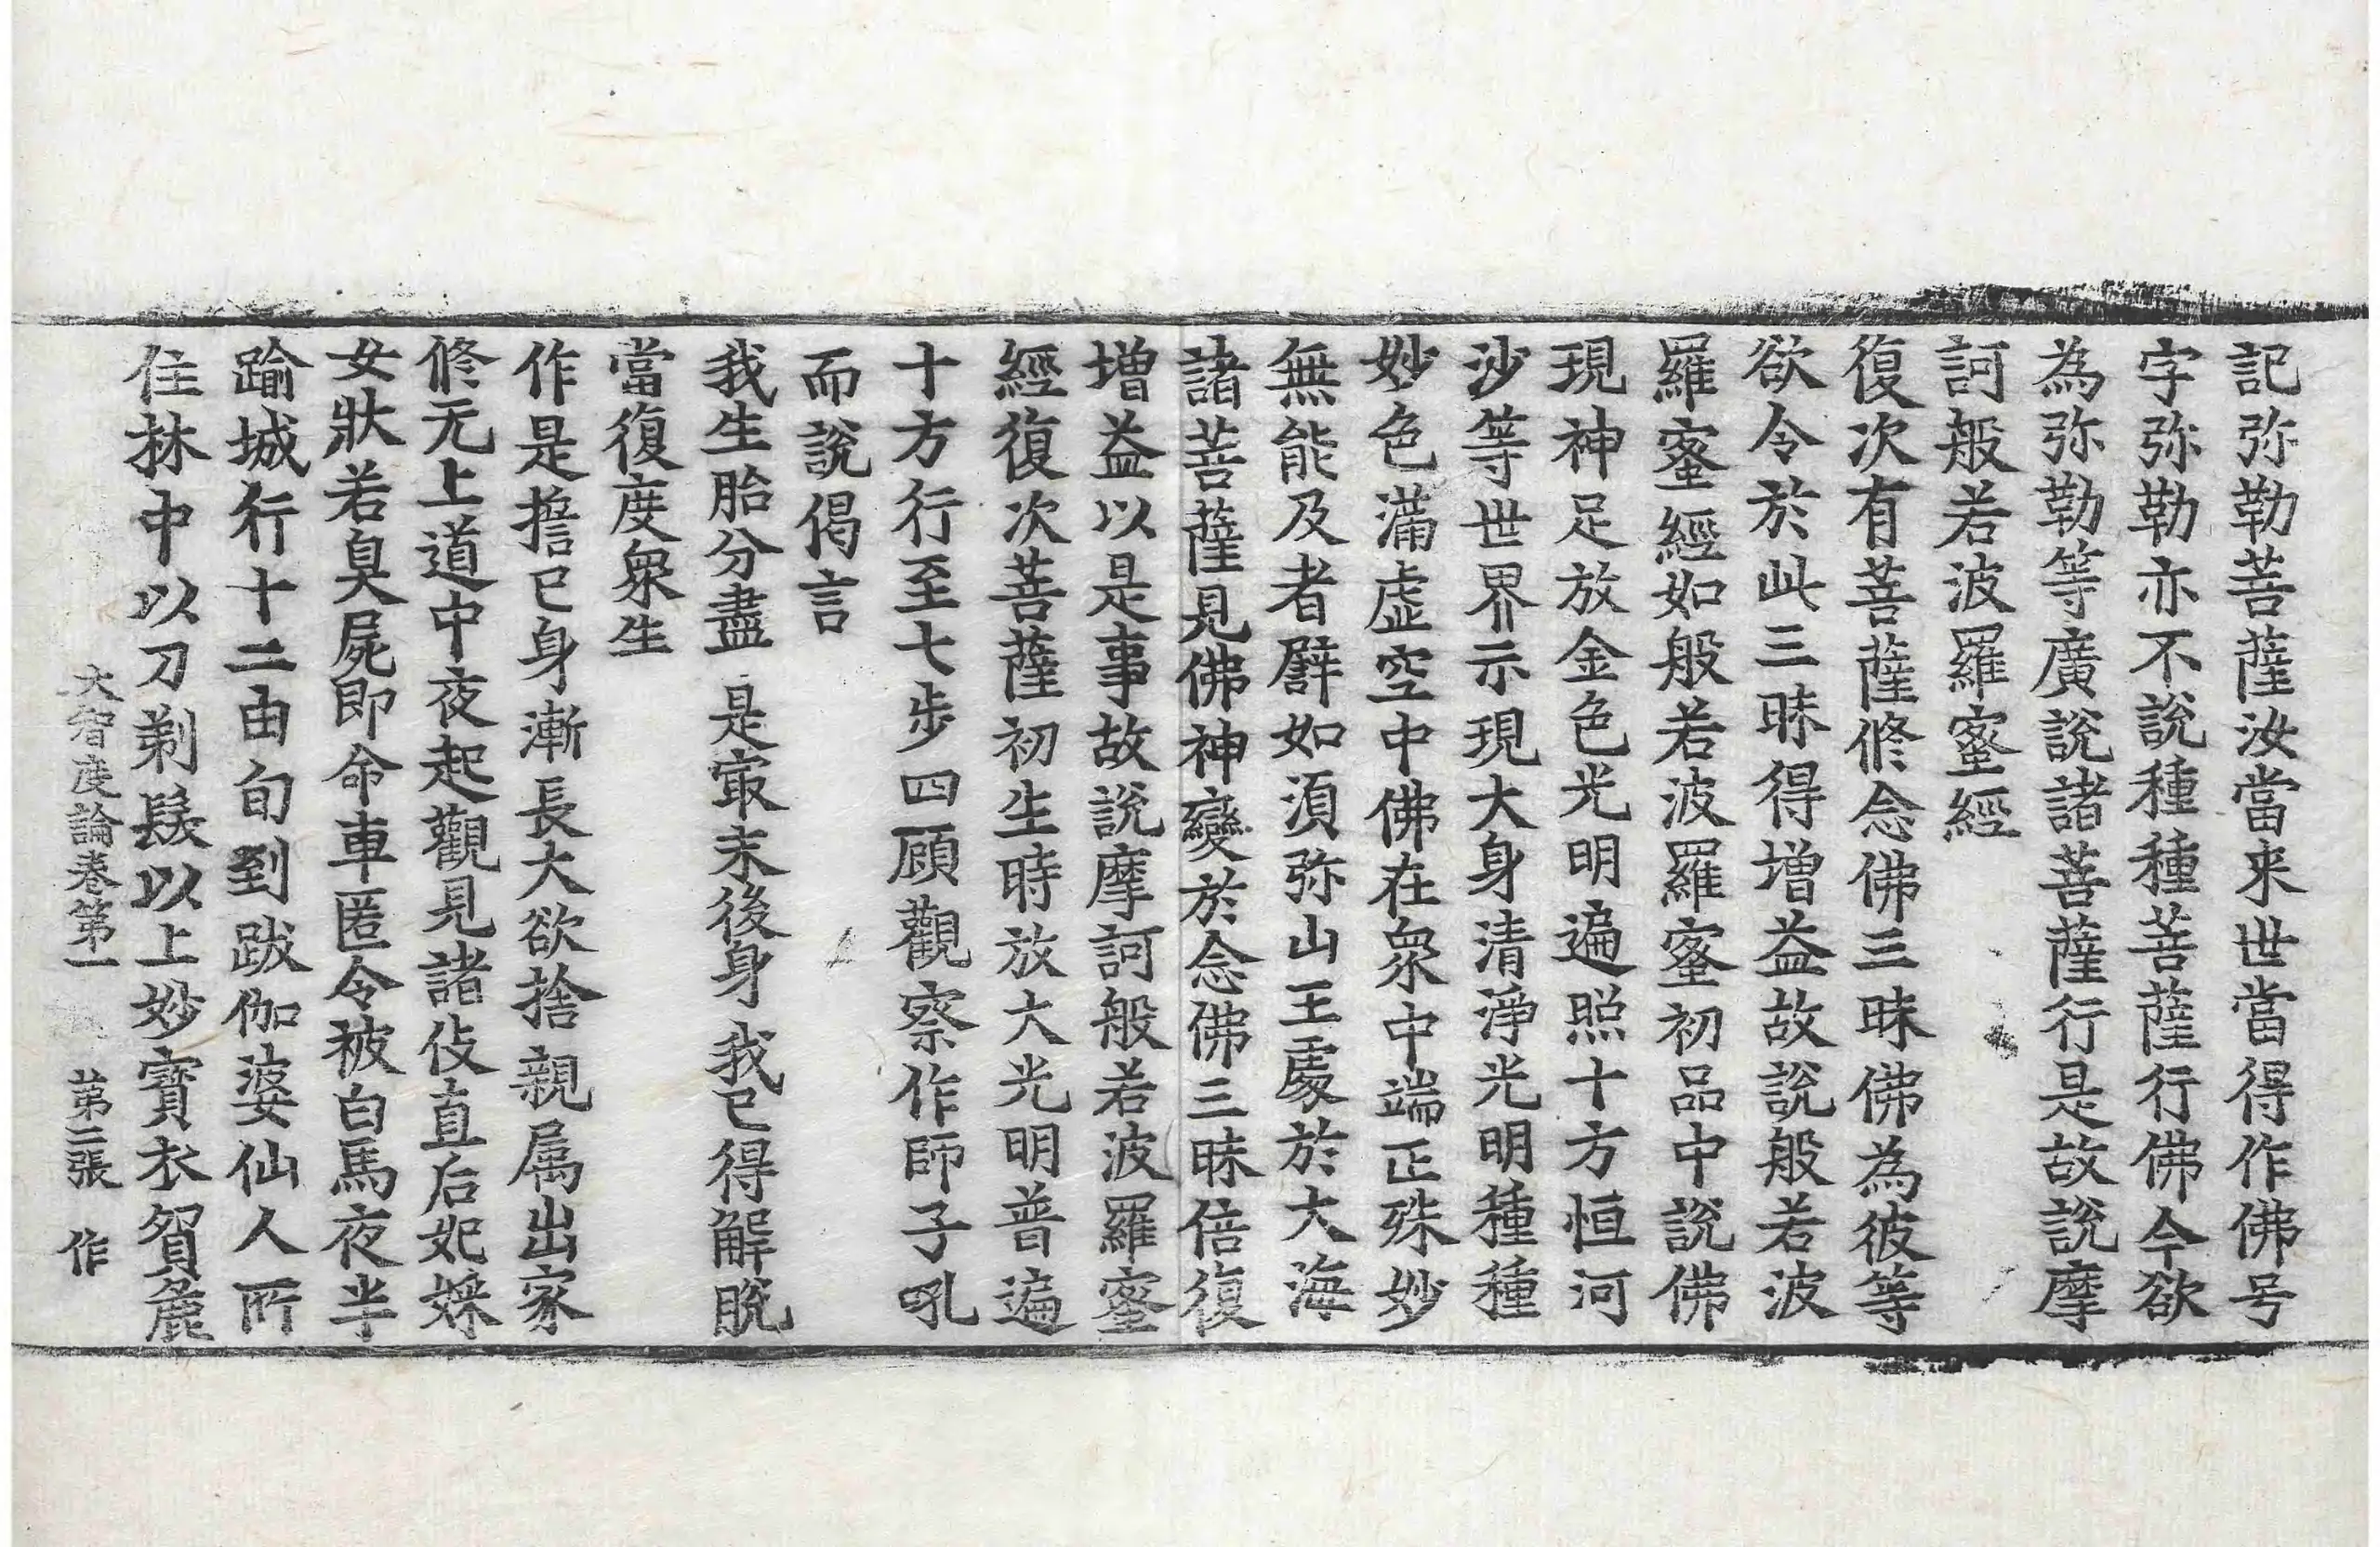 記弥勒菩薩汝當来世當得作佛号
字弥勒亦不說種種菩薩行佛今欲
為弥勒等廣說諸菩薩行是故說摩
訶般若波羅蜜經
復次有菩薩修念佛三昧佛為彼等
欲令於此三昧得增益故說般若波
羅蜜經如般若波羅蜜初品中說佛
現神足放金色光明遍照十方恒河
沙等世界示現大身清淨光明種種
妙色滿虛空中佛在衆中端正殊妙
無能及者譬如須弥山王處於大海
諸菩薩見佛神變於念佛三昧倍復
增益以是事故說摩訶般若波羅蜜
經復次菩薩初生時放大光明普遍
十方行至七步四顧觀察作師子吼
而說偈言
我生胎分盡 是㝡末後身 我已得解脫
當復度衆生
作是擔已身漸長大欲捨親属出家
修无上道中夜起觀見諸伎直后妃婇
女狀若臭屍即命車匿令被白馬夜半
踰城行十二由旬到跋伽婆仙人所
住林中以刀剃髮以上妙寶衣貿麁
大智度論卷第一 第二張 作